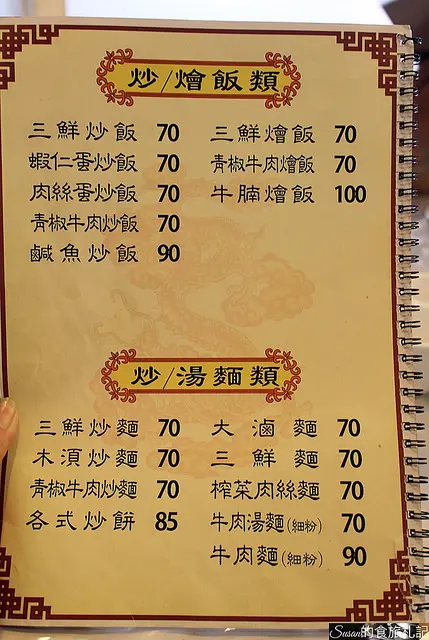 炒/燴飯類
三鮮炒飯 70 三鮮燴飯 70
蝦仁蛋炒飯 70 青椒牛肉燴飯 70
肉絲蛋炒飯 70 牛腩燴飯 100
青椒牛肉炒飯 70
鹹魚炒飯 90
炒/湯麵類
三鮮炒麵 70 大滷麵 70
木須炒麵 70 三鮮麵 70
青椒牛肉炒麵 70 榨菜肉絲麵 70
各式炒餅 85 牛肉湯麵(細粉) 70
牛肉麵(細粉) 90
Susan的食旅札記